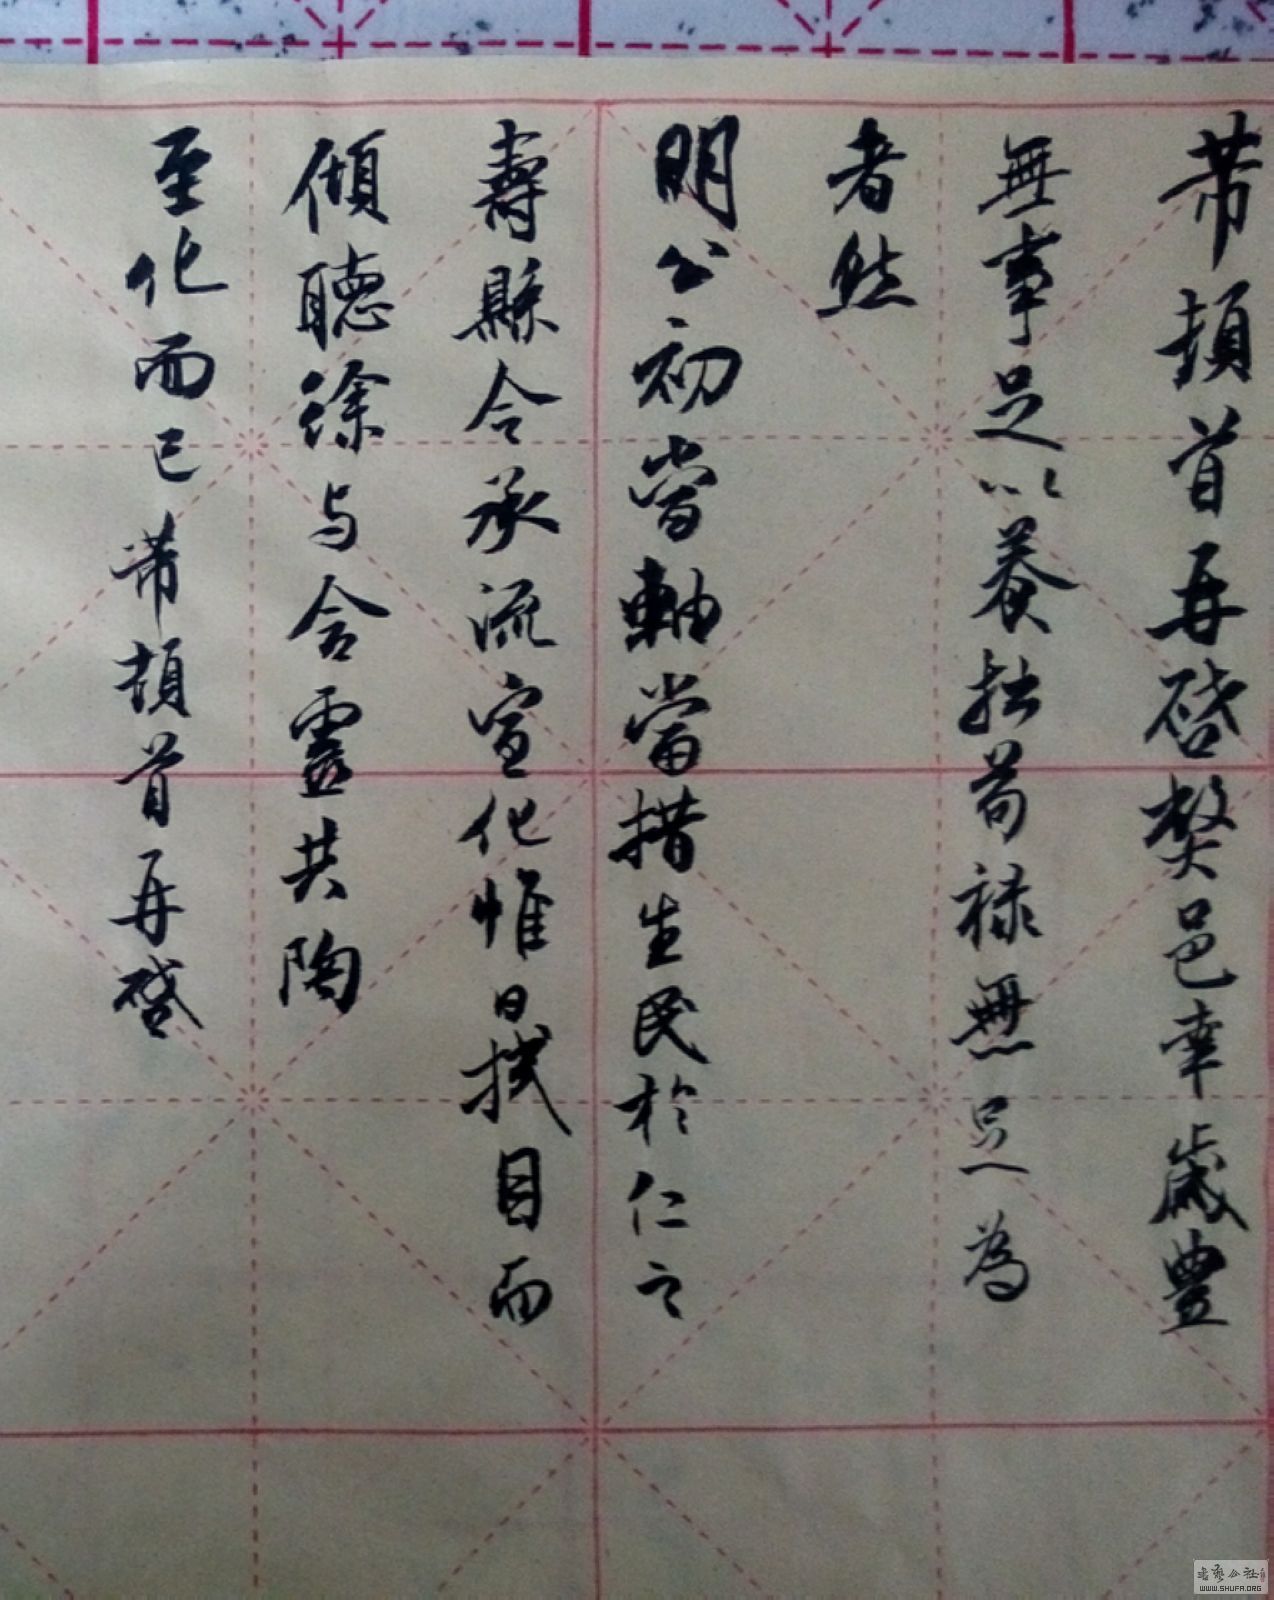 芾頓首再啓弊邑幸歲豐
無事足以養拙苟祿無足為
者然
明公初當軸當措生民於仁之
壽縣令承流宣化惟日拭目而
傾聽徐与含靈共陶
至化而已芾頓首再啓
WWW.SHUFA.ORG